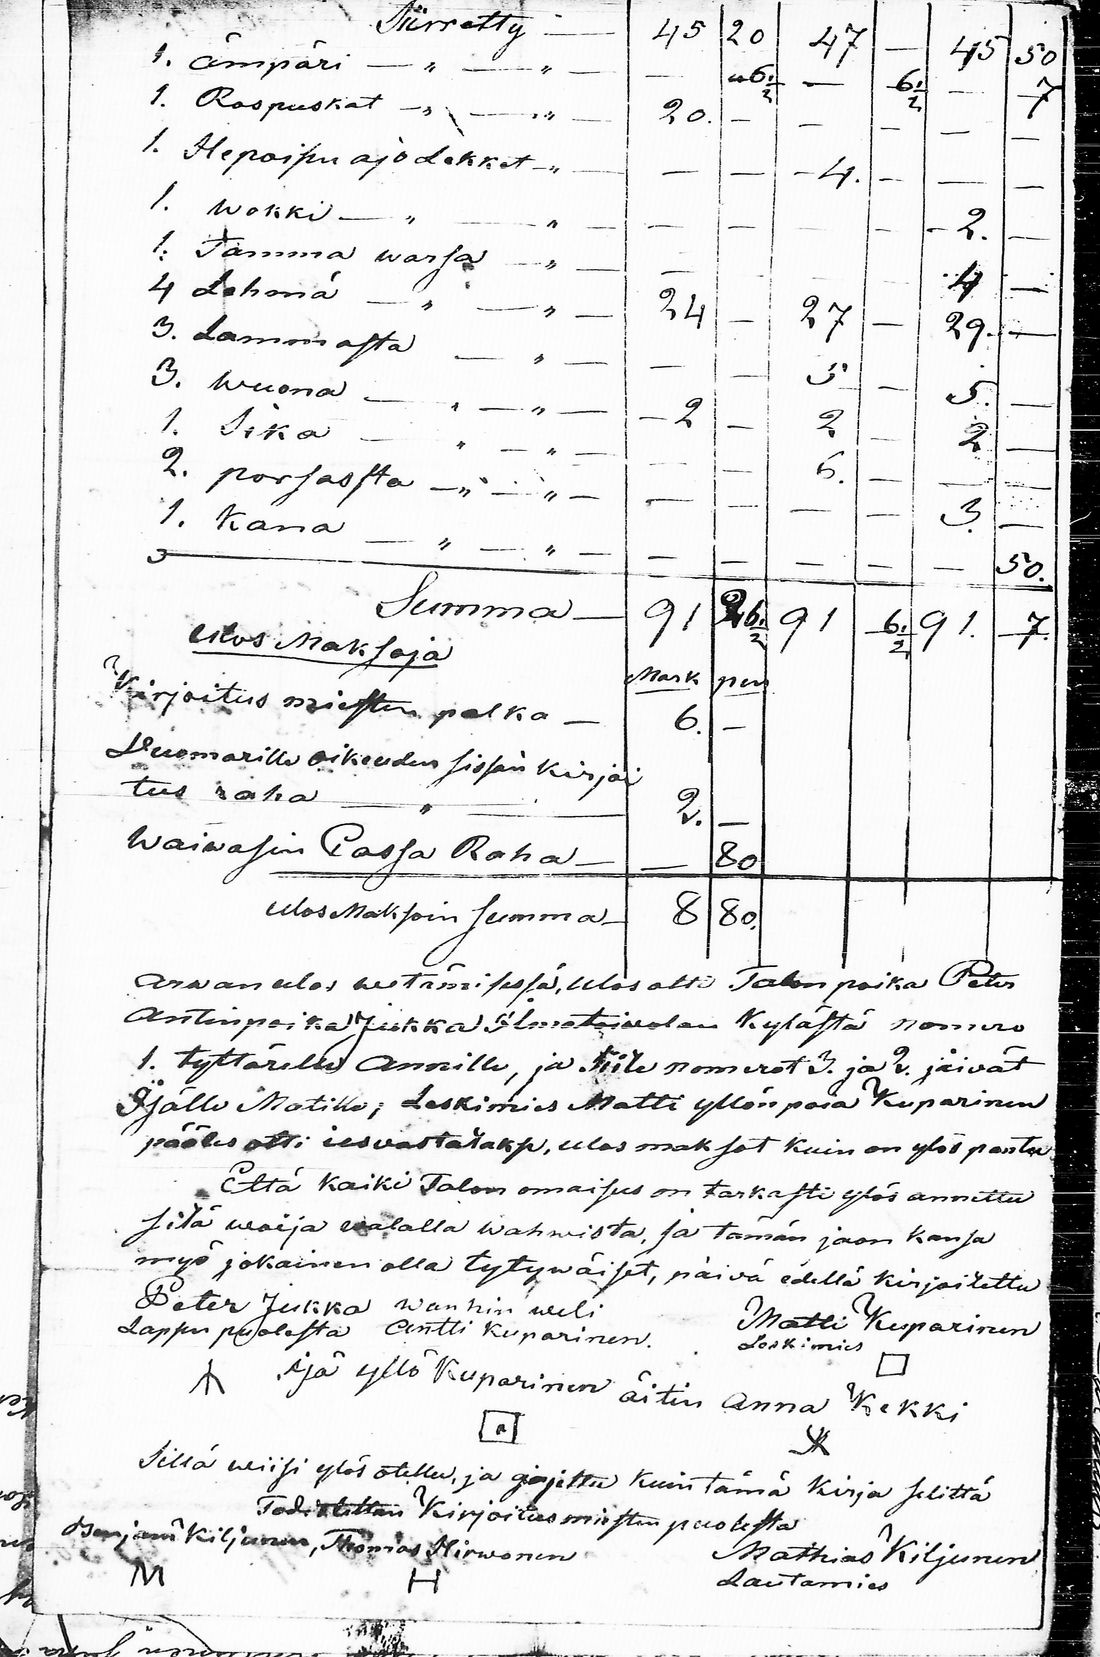 Siirretty — 45 20 47 — 45 50
1. Ämpäri — „ — „ — — 6½ — 6½ — 7
1. Raspuskat — „ — „ — 20. — — — — —
1. Hepoisen ajo Lekket — „ — — — 4. — — —
1. Wokki — „ — „ — — — — — 2. —
1. Tamma warsa — „ — — 4 —
4 Lehmä — „ — „ — 24 — 27 — 29. —
3. Lammasta — „ — — — 3 — 5. —
3. Wuona — „ — „ — 2 — 2 — 2 —
1. Sika — „ — „ — — — 6. — — —
2. porsassta — „ — „ — — — — — 3. —
1. Kana — „ — „ — — — — — — 50.
Summa — 91 26½ 91 6½ 91. 7.
Ulos Maksoja
Mark pen
Kirjoitus miesten palka — 6. —
Duomarille oikeuden sissän Kirjoi
tus raha — „ — 2. —
Waiwasin Cassa Raha — — 80
Ulos Maksoin summa — 8 80.
Arwan ulos wetämisessä, ulos otti Talon poika Peter
Antinpoika Jukka Ilmatoiwolan Kylästä nomero
1. tyttärelle Annille, ja nomerot 3. ja 2. jäivät
Äjälle Matille; Leskimies Matti yllön poia Kuparinen
päöles otti, ulos maksot kuin on ylös pantu
Että kaiki Talon omaisus on tarkasti ylös annettu
sitä woija walalla wahwista, ja tämän jaon kansa
myö jokainen olla tytywäiset, päivä edellä kirjoitettu
Peter Jukka wanhin weli Matti Kuparinen
Lappu puolesta Antti Kuparinen. Leskimies
Äjä yllö Kuparinen äitin Anna Kekki
Sillä wiisi ylös otettu, ja jajettu kuin tämä Kirja selittä
Todistettan Kirjoitus miesten puolesta
Benjami Kiljunen, Thomas Hirwonen Mathias Kiljunen
M H Lautamies